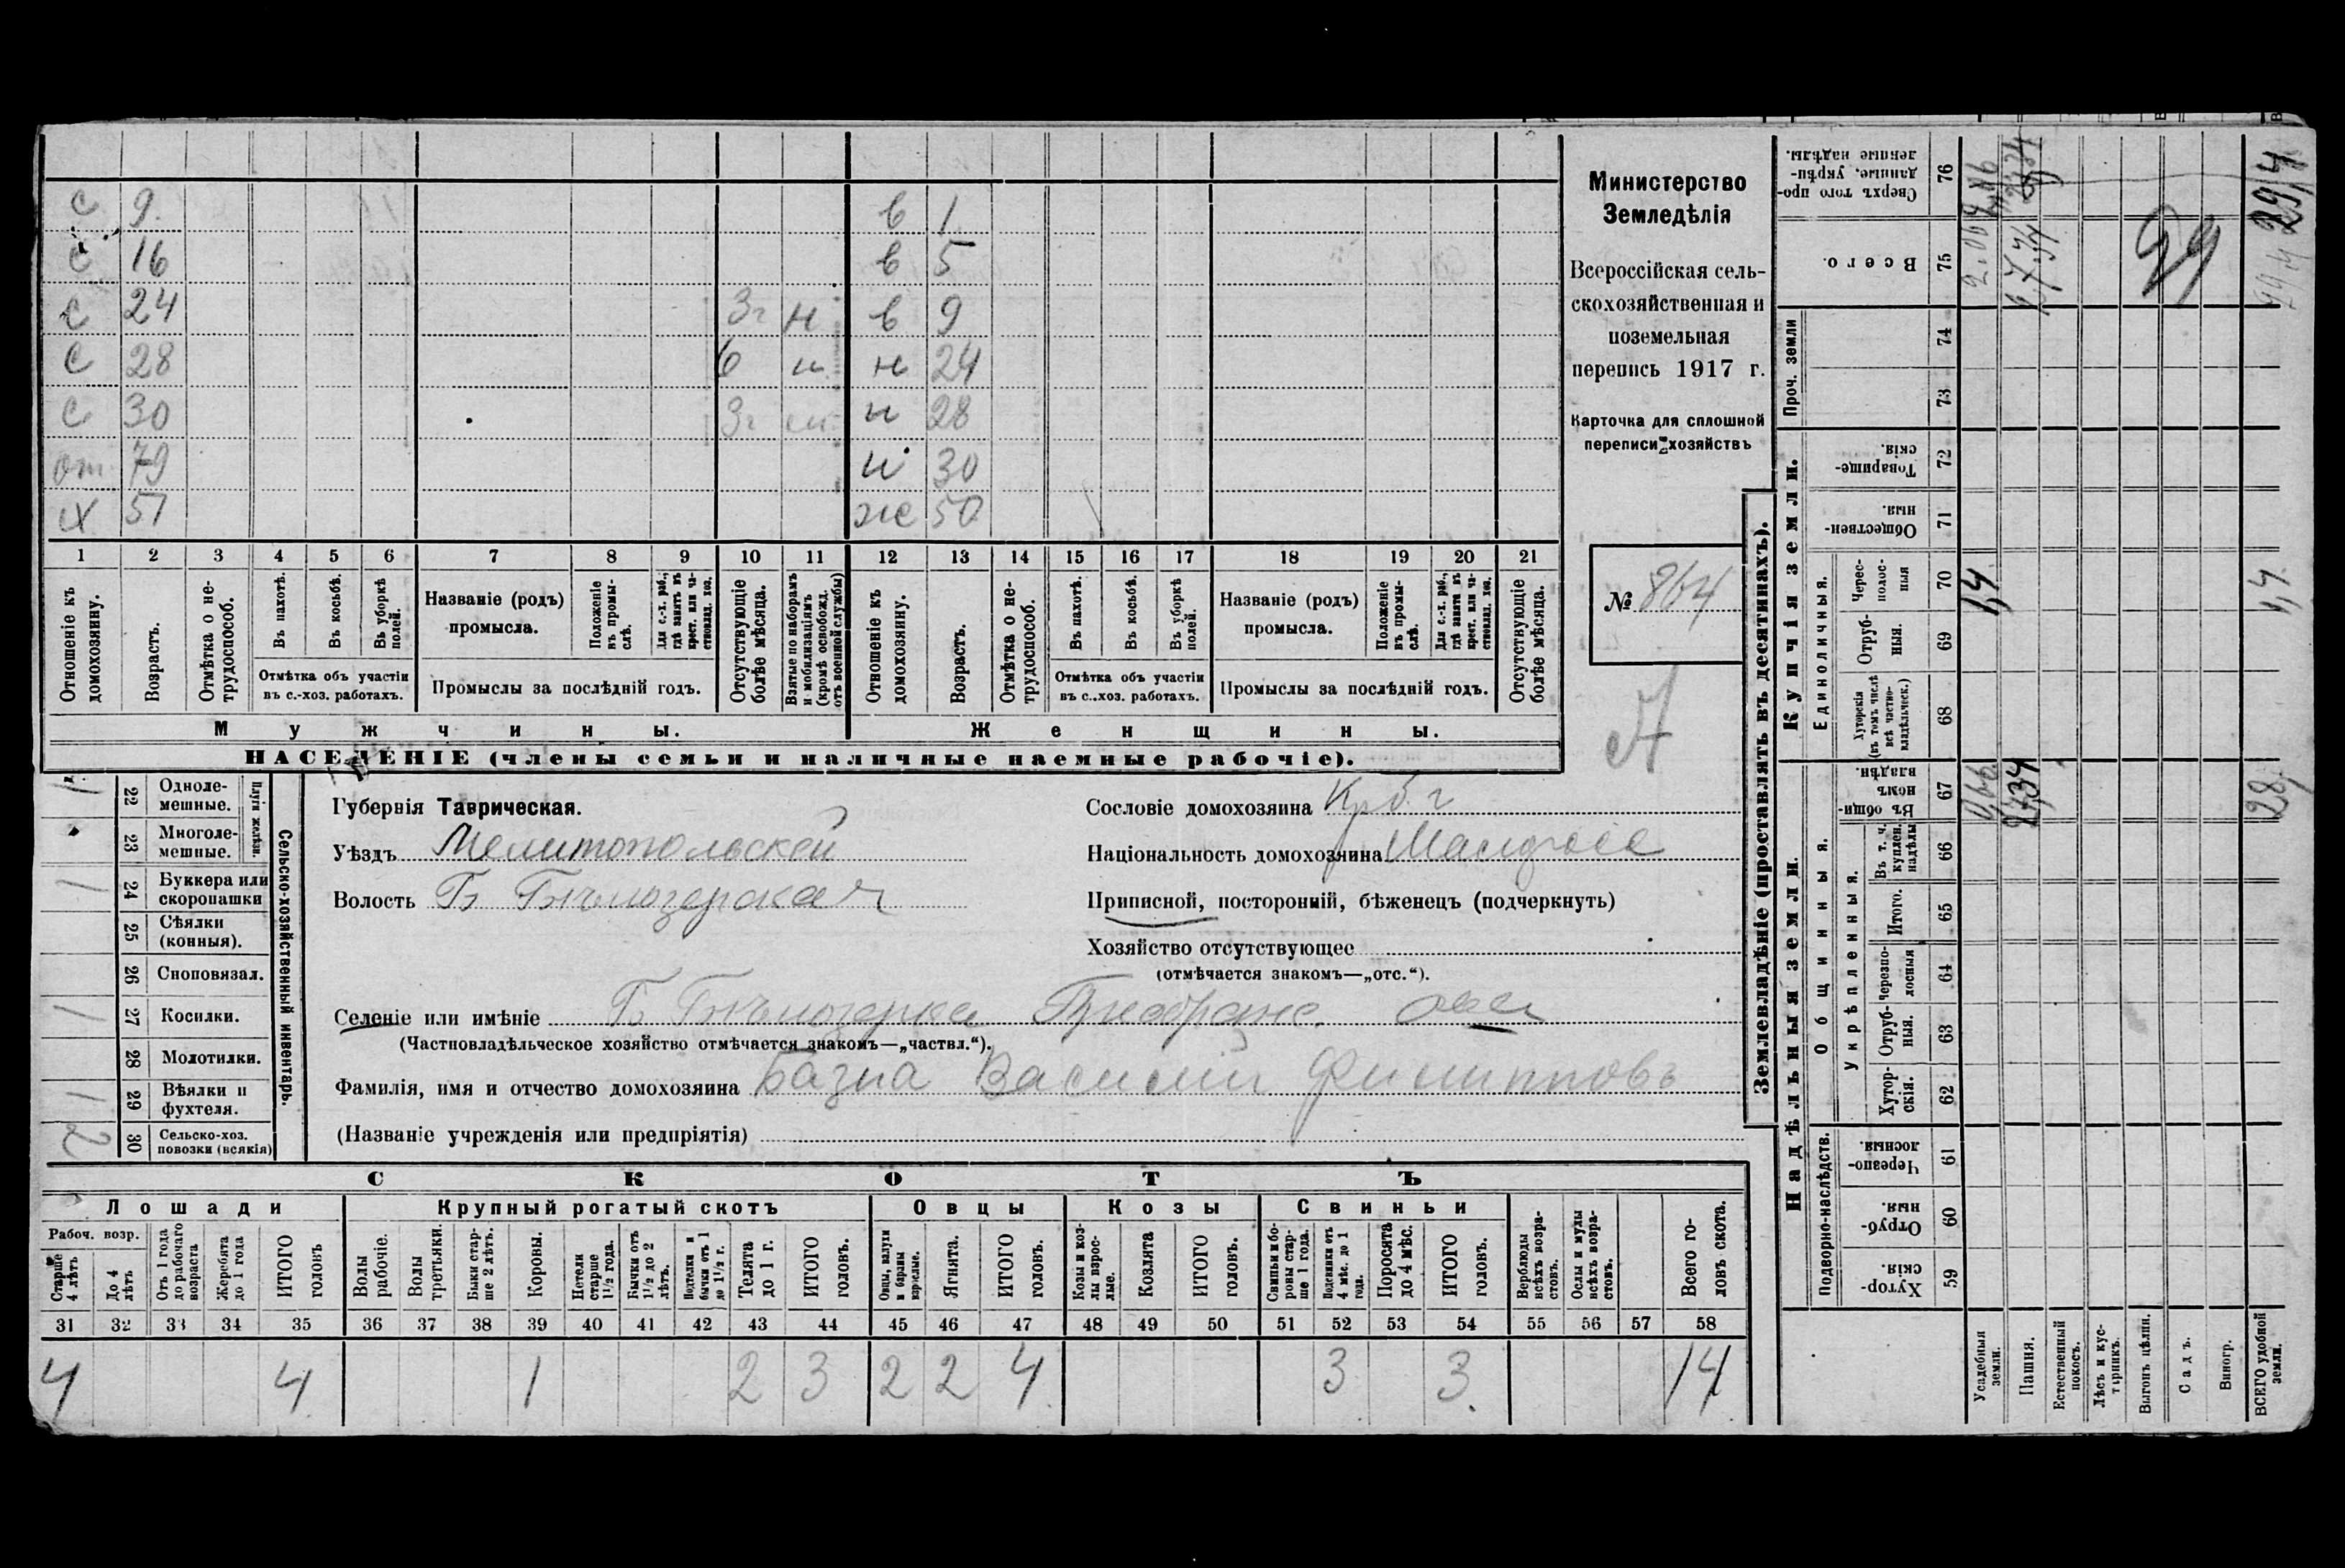 с 9 в 1
с 16 в 5
с 24 3г н в 9
с 28 6 н 24
с 30 3г н 28
от 79 н 30
х 51 же 50
1 2 3 4 5 6 7 8 9 10 11 12 13 14 15 16 17 18 19 20 21
Отношеніе къ домохозяину.
Возрастъ.
Отмѣтка о не-трудоспособ.
Въ пахотѣ.
Въ косьбѣ.
Въ уборкѣ полей.
Отмѣтка объ участіи
въ с.-хоз. работахъ.
Названіе (родъ)
промысла.
Положеніе въ промы-слѣ.
Для с.-х. раб., гдѣ занятъ въ крест. или ча-стновлад. хоз.
Промыслы за послѣдній годъ.
Отсутствующіе болѣе мѣсяца.
Взятые по наборамъ и мобилизаціямъ (кромѣ освобожд. отъ военной службы)
Отношеніе къ домохозяину.
Возрастъ.
Отмѣтка о не-трудоспособ.
Въ пахотѣ.
Въ косьбѣ.
Въ уборкѣ полей.
Отмѣтка объ участіи
въ с..хоз. работахъ.
Названіе (родъ)
промысла.
Положеніе въ промы-слѣ.
Для с.-х. раб., гдѣ занята въ крест. или ча-стновлад. хоз.
Промыслы за послѣдній годъ.
Отсутствующіе болѣе мѣсяца.
Мужчины.
Женщины.
НАСЕЛЕНІЕ (члены семьи и наличные наемные рабочіе).
Министерство
Земледѣлія
Всероссійская сель-
скохозяйственная и
поземельная
перепись 1917 г.
Карточка для сплошной
переписи хозяйствъ
№ 864
22 Одноле-мешные.
23 Многоле-мешные.
Плуги желѣзн.
24 Буккера или скоропашки 1
25 Сѣялки (конныя).
26 Сноповязал.
27 Косилки. 1
28 Молотилки.
29 Вѣялки и фухтеля. 1
30 Сельско-хоз. повозки (всякія) 2
Сельско-хозяйственный инвентарь.
Губернія Таврическая.
Уѣздъ Мелитопольской
Волость Б Бѣлозерская
Селеніе или имѣніе Б Бѣлозерка
(Частновладѣльческое хозяйство отмѣчается знакомъ—„частвл.“).
Фамилія, имя и отчество домохозяина Базна Василій Филипповъ
(Названіе учрежденія или предпріятія)
Сословіе домохозяина
Національность домохозяина
Приписной, посторонній, бѣженецъ (подчеркнуть)
Хозяйство отсутствующее
(отмѣчается знакомъ—„отс.“).
СКОТЪ
Лошади
Крупный рогатый скотъ
Овцы
Козы
Свиньи
Рабоч. возр.
Старше 4 лѣтъ
До 4 лѣтъ
Отъ 1 года до рабочаго возраста
Жеребята до 1 года
ИТОГО головъ
Волы рабочіе.
Волы третьяки.
Быки стар-ше 2 лѣтъ.
Коровы.
Нетели старше 1½ года.
Бычки отъ 1½ до 2 лѣтъ.
Подтелки и бычки отъ 1 до 1½ г.
Телята до 1 г.
ИТОГО головъ.
Овцы, валухи и бараны взрослые.
Ягнята.
ИТОГО головъ.
Козы и коз-лы взрос-лые.
Козлята
ИТОГО головъ.
Свиньи и бо-ровы стар-ше 1 года.
Подсвинки отъ 4 мѣс. до 1 года.
Поросята до 4 мѣс.
ИТОГО головъ.
Верблюды всѣхъ возра-стовъ.
Ослы и мулы всѣхъ возра-стовъ.
Всего го-ловъ скота.
31 32 33 34 35 36 37 38 39 40 41 42 43 44 45 46 47 48 49 50 51 52 53 54 55 56 57 58
4 4 1 2 3 2 2 4 3 3 14
Землевладѣніе (проставлять въ десятинахъ).
Надѣльныя земли.
Купчія земли.
Проч. земли
Подворно-наслѣдств.
Общинныя.
Укрѣпленныя.
Единоличныя.
Сверхъ того про-данные, укрѣп-ленные надѣлы. 76
Всего. 75
74
73
Товарище-скія. 72
Обществен-ныя. 71
Черес-полос-ныя 70
Отруб-ныя. 69
Хуторскія (въ томъ числѣ всѣ частно-владѣльческ.) 68
Въ общи-номъ владѣн. 67
Въ т. ч. куплен. надѣлы 66
Итого. 65
Черезпо-лосныя 64
Отруб-ныя. 63
Хутор-скія. 62
Черезпо-лосныя. 61
Отруб-ныя. 60
Хутор-скія. 59
Усадебныя земли.
Пашня.
Естественный покосъ.
Лѣсъ и кус-тарникъ.
Выгонъ цѣлин.
Садъ.
Виногр.
ВСЕГО удобной земли.
2.06
27.34
29
29,4
1,4
1,4
0,66
27,34
28